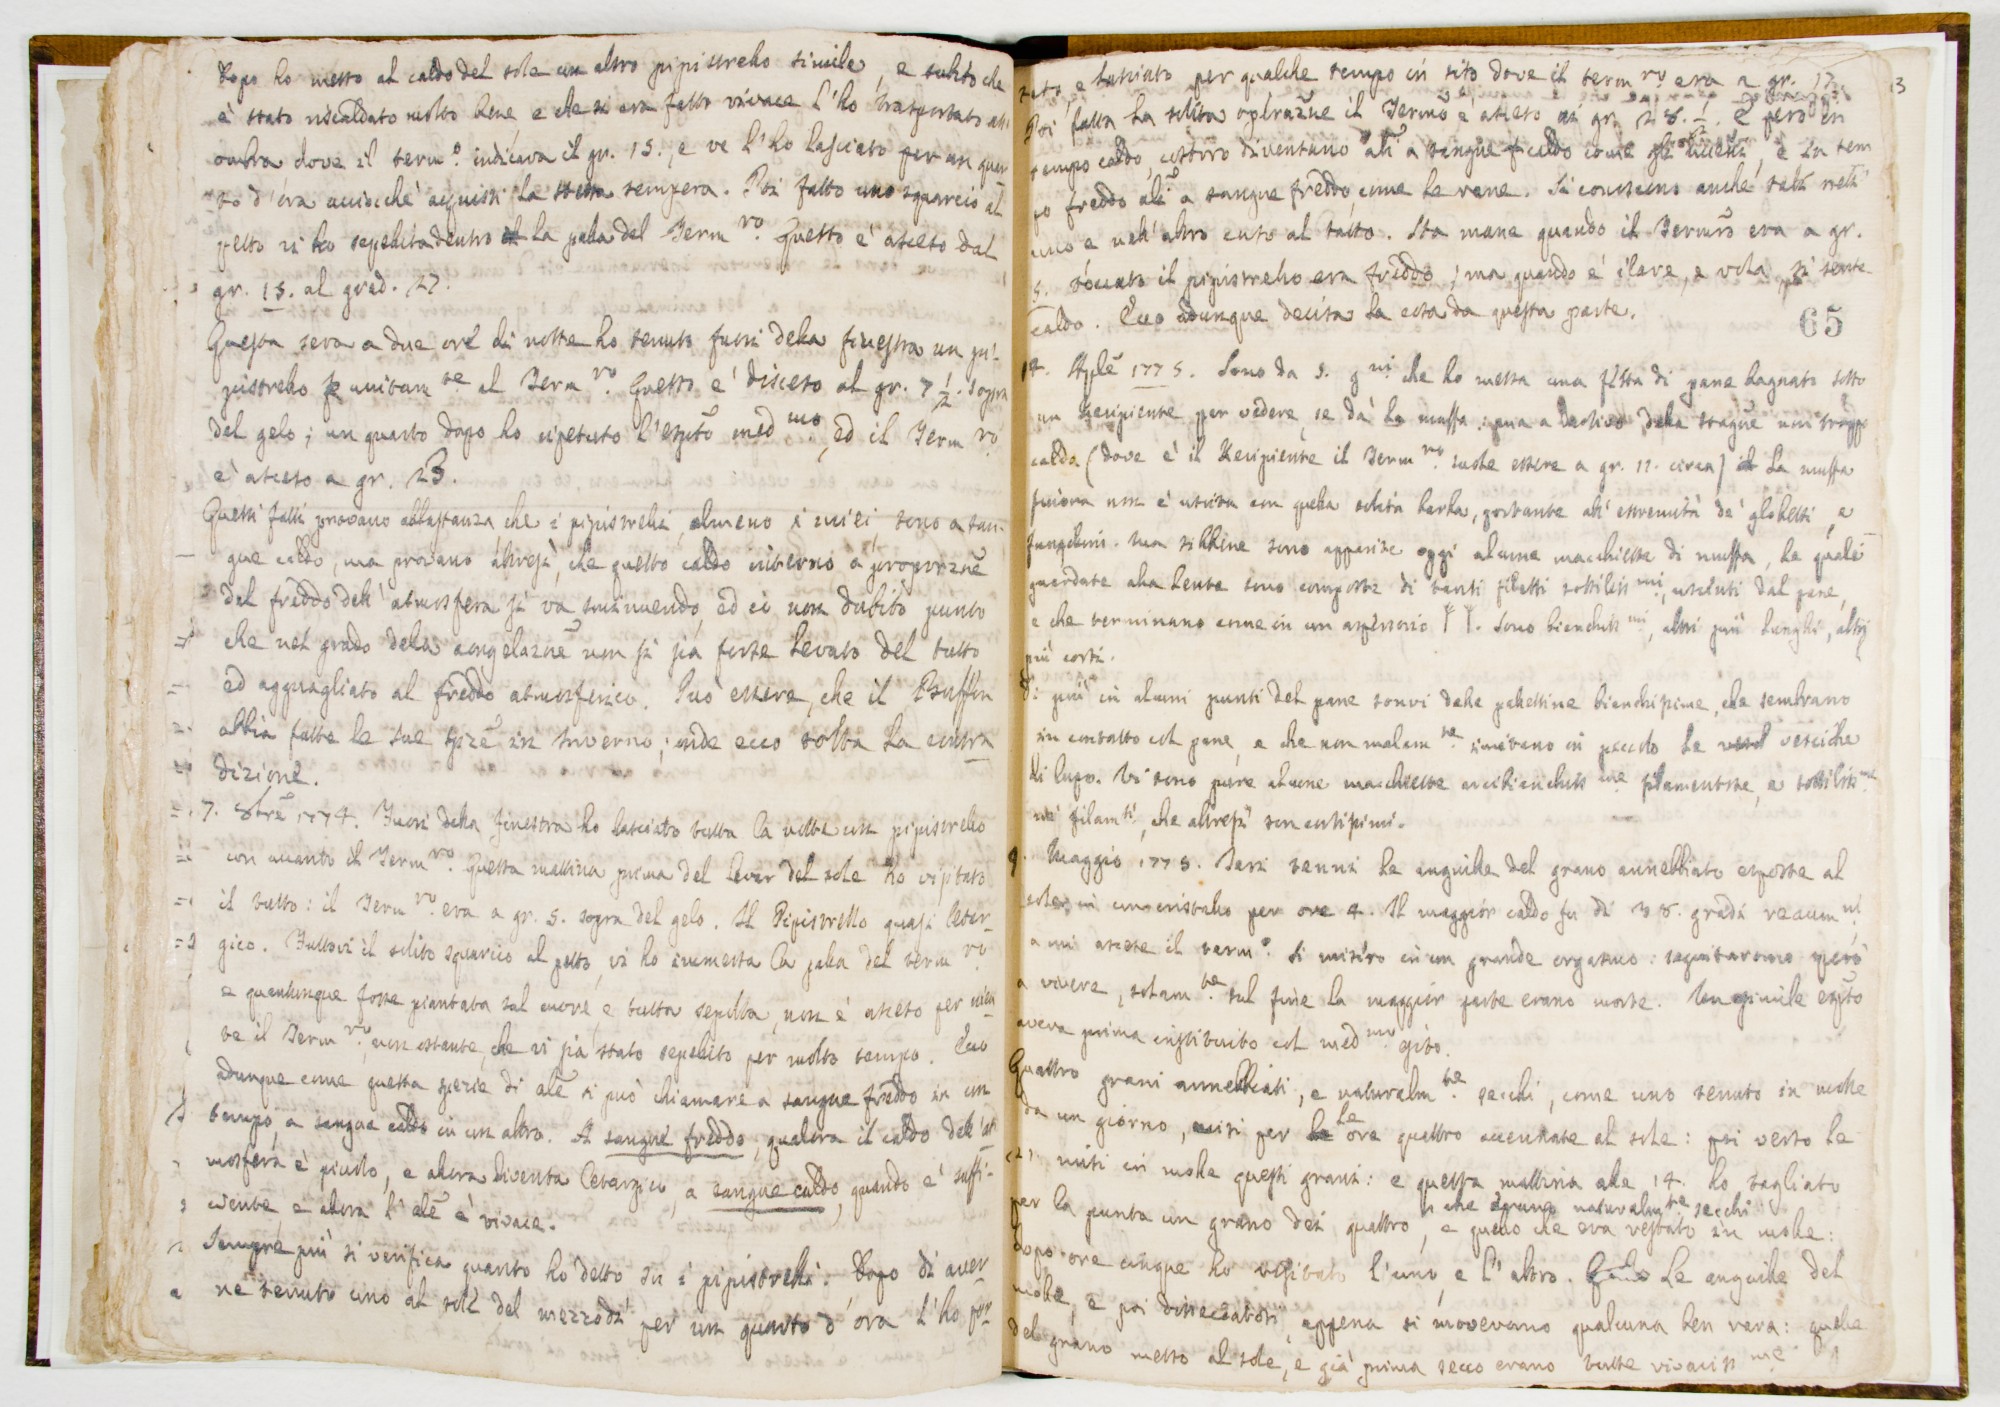 Dopo ho messo al caldo del sole un altro pipistrello simile, e subito che
è stato riscaldato molto bene e che si era fatto vivace l'ho trasportato all'
ombra dove il term.o indicava il gr. 15., e ve l'ho lasciato per un quar
to d'ora acciocchè acquisti la stessa tempera. Poi fatto uno squarcio al
petto vi ho sepellita dentro la palla del Term.ro Questo è asceso dal
gr. 15. al grad. 27.
Questa sera a due ore di notte ho tenuto fuori della finestra un pi-
pistrello unitam.te al Term.ro Questo è disceso al gr. 7 1/2. sopra
del gelo; un quarto dopo ho ripetuto l'espto med.mo, ed il Term.ro
è asceso a gr. 23.
Questi fatti provano abbastanza che i pipistrelli, almeno i miei, sono a san-
gue caldo, ma provano altresì, che questo caldo interno a proporzne
del freddo dell'atmosfera si va sminuendo, ed io non dubito punto
che nel grado della congelazne non si sia forse levato del tutto
ed agguagliato al freddo atmosferico. Può essere, che il Buffon
abbia fatte le sue spze in Inverno; onde ecco tolta la contra
dizione.
7. 8bre 1774. Fuori della finestra ho lasciato tutta la notte un pipistrello
con accanto il Term.ro Questa mattina prima del levar del sole ho visitato
il tutto: il Term.ro era a gr. 5. sopra del gelo. Il Pipistrello quasi letar-
gico. Fattovi il solito squarcio al petto, vi ho immersa la palla del term.ro
e quantunque fosse piantata sul cuore, e tutta sepolta, non è asceso per nien
te il Term.ro, non ostante, che vi sia stato sepellito per molto tempo. Ecco
adunque come questa spezie di ale si può chiamare a sangue freddo in un
tempo, a sangue caldo in un altro. A sangue freddo, qualora il caldo dell'at
mosfera è piccolo, e allora diventa letargico, a sangue caldo, quando è suffi-
ciente, e allora l'ale è vivace.
Sempre più si verifica quanto ho detto su i pipistrelli. Dopo di aver
ne tenuto uno al sole del mezzodì per un quarto d'ora l'ho por
tato, e lasciato per qualche tempo in sito dove il term.ro era a gr. 17.
Poi fatta la solita operazne il Termro è asceso ai gr. 28. 1/2. E però in
tempo caldo, costoro diventano ali a sangue caldo come gli uccelli, e in tem
po freddo ali a sangue freddo, come le rane. Si conoscono anche tali nell'
uno e nell'altro caso al tatto. Sta mane quando il Termro era a gr.
5. toccato il pipistrello era freddo; ma quando è ilare, e vola, si sente
caldo. Ecco adunque decisa la cosa da questa parte.
65
14. Aple 1775. Sono da 5. g.ni che ho messa una fetta di pane bagnato sotto
un Recipiente per vedere, se dà la muffa: ma a motivo della stagne non troppo
calda (dove è il Recipiente il Term.ro suole essere a gr. 11. circa) la muffa
finora non è uscita con quella solita barba, portante all'estremità de' globetti, e
funghetti. Ma sibbene sono apparite oggi alcune macchiette di muffa, le quali
guardate alla lente sono composte di tanti filetti sottiliss.mi, usciti dal pane,
e che terminano come in un aspersorio. Sono bianchiss.mi, altri più lunghi, altri
più corti.
Di più in alcuni punti del pane sonvi delle pallottine bianchissime, che sembrano
in contatto col pane, e che non malam.te imitano in piccolo le vesciche
di lupo. Vi sono pure alcune macchiette arcibianchiss.me filamentose, e sottiliss.
mi filam.ti, che altresì son cortissimi.
9. Maggio 1775. Jeri tenni le anguille del grano annebbiato esposte al
sole in un cristallo per ore 4. Il maggior caldo fu di 38. gradi reaum.ni
a cui ascese il term.o Si misero in un grande orgasmo: seguitarono però
a vivere, solam.te sul fine la maggior parte erano morte. Un simile espto
aveva prima instituito col med.mo esito.
Quattro grani annebbiati, e naturalm.te secchi, come uno tenuto in molle
da un giorno, misi per le ore quattro accennate al sole: poi verso le
misi in molle questi grani: e questa mattina alle 14. ho tagliato
per la punta un grano dei quattro, che erano naturalm.te secchi e quello che era restato in molle:
dopo ore cinque ho visitato l'uno, e l'altro. Le anguille del
molle, e poi disseccatosi, appena si movevano qualcuna ben rara: quelle
del grano messo al sole, e già prima secco erano tutte vivaciss.me